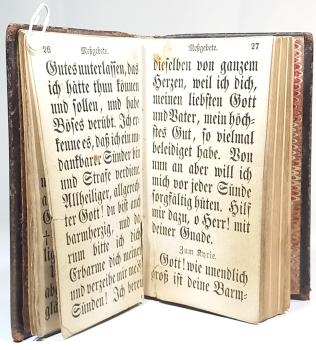 26 Meßgebete.
Gutes unterlassen, das
ich hätte thun können
und sollen, und habe
Böses verübt. Ich er-
kenne es, daß ich ein un-
dankbarer Sünder bin
und Strafe verdiene.
Allheiliger, allgerech-
ter Gott! du bist auch
barmherzig, und da-
rum bitte ich dich:
Erbarme dich meiner
und verzeihe mir meine
Sünden! Ich bereue
Meßgebete. 27
dieselben von ganzem
Herzen, weil ich dich,
meinen liebsten Gott
und Vater, mein höch-
stes Gut, so vielmal
beleidiget habe. Von
nun an aber will ich
mich vor jeder Sünde
sorgfältig hüten. Hilf
mir dazu, o Herr! mit
deiner Gnade.
Zum Kyrie.
Gott! wie unendlich
groß ist deine Barm-